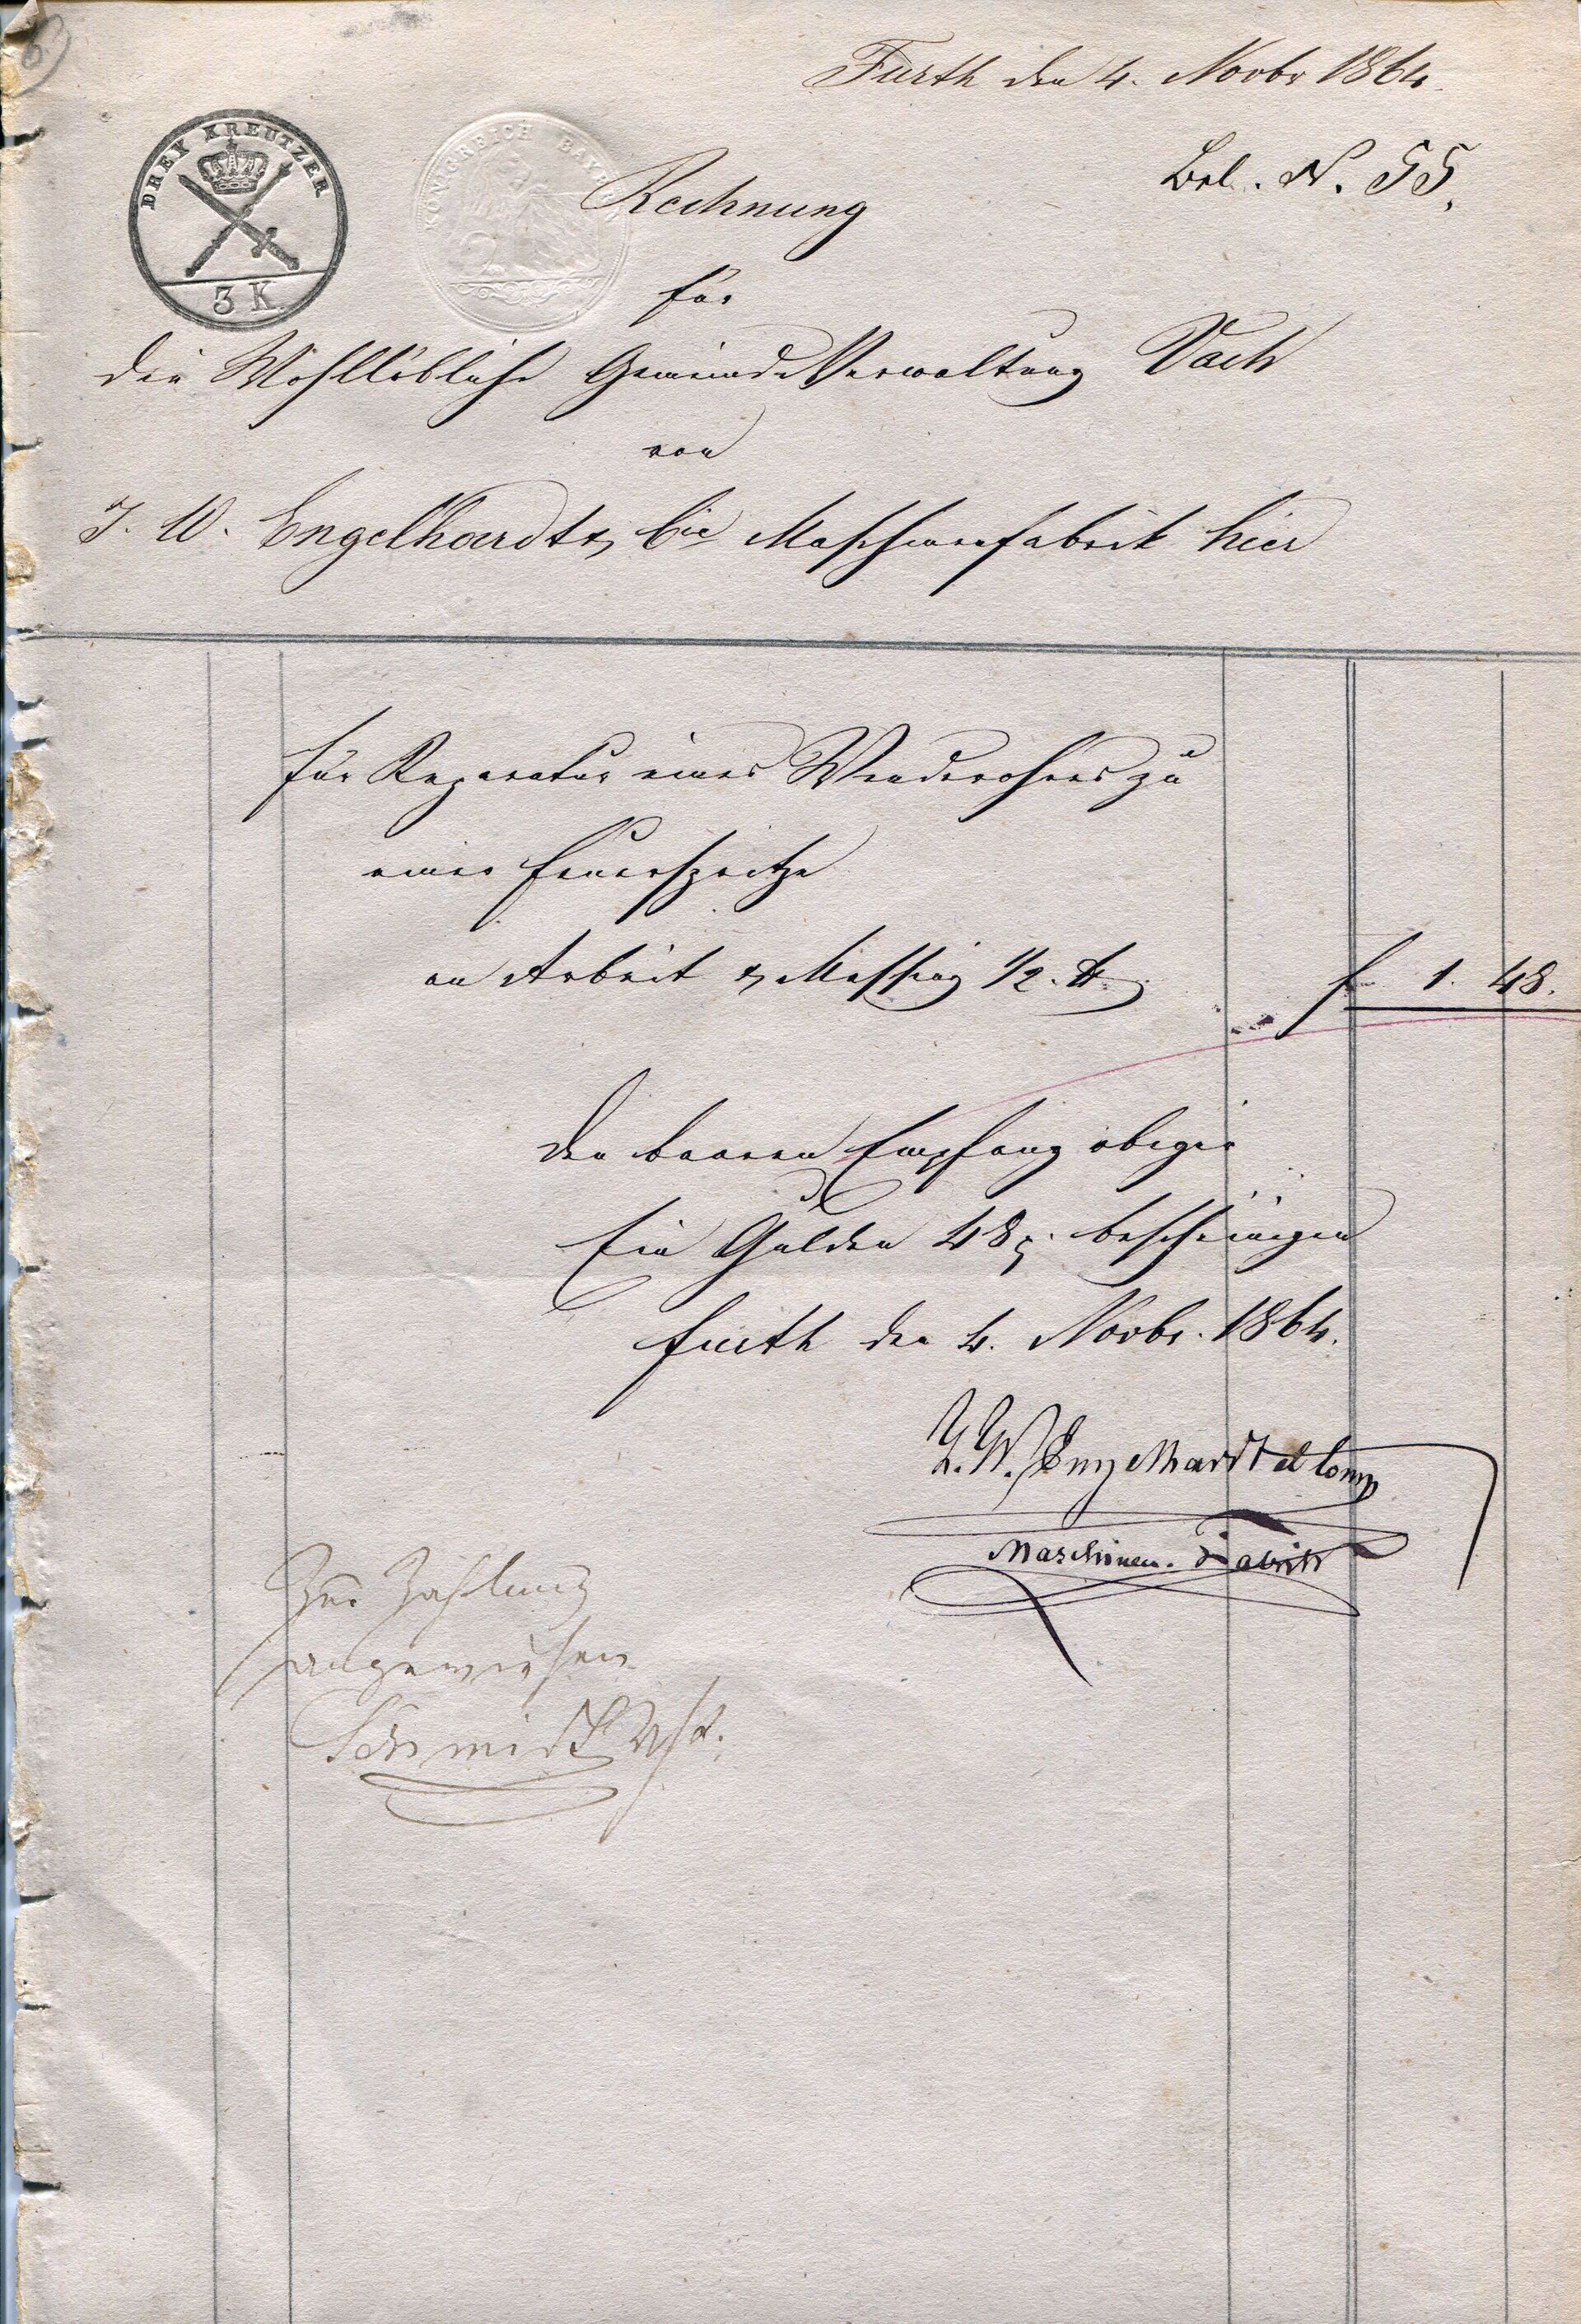 6)
Fürth den 4. Novbr 1864.
Bel. N. 55.
DREY KREUTZER
3 K.
KÖNIGREICH BAYERN
Rechnung
für
die Wohllöbliche Gemeinde Verwaltung Vach
von
J. W. Engelhardt & Cie Maschinenfabrik hier
für Reparatur eines Wenderohres zu
einer Feuerspritze
an Arbeit & Messing 1/2 ℔
f 1. 48.
Den baaren Empfang obiger
Ein Gulden 48 x. bescheinigen
Fürth den 4. Novbr. 1864.
J. W. Engelhardt et Comp
Maschinen-Fabrik
Zur Zahlung
angewiesen
Schmidt Vst.